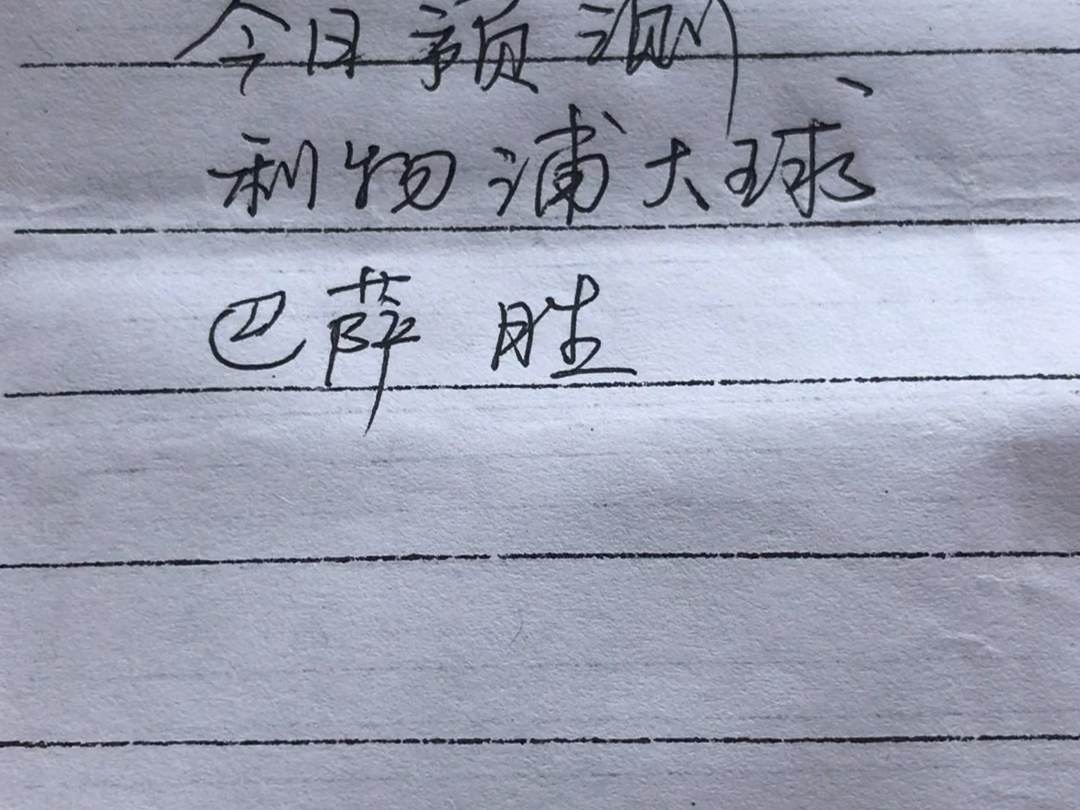 今日预测
利物浦大球
巴萨 胜